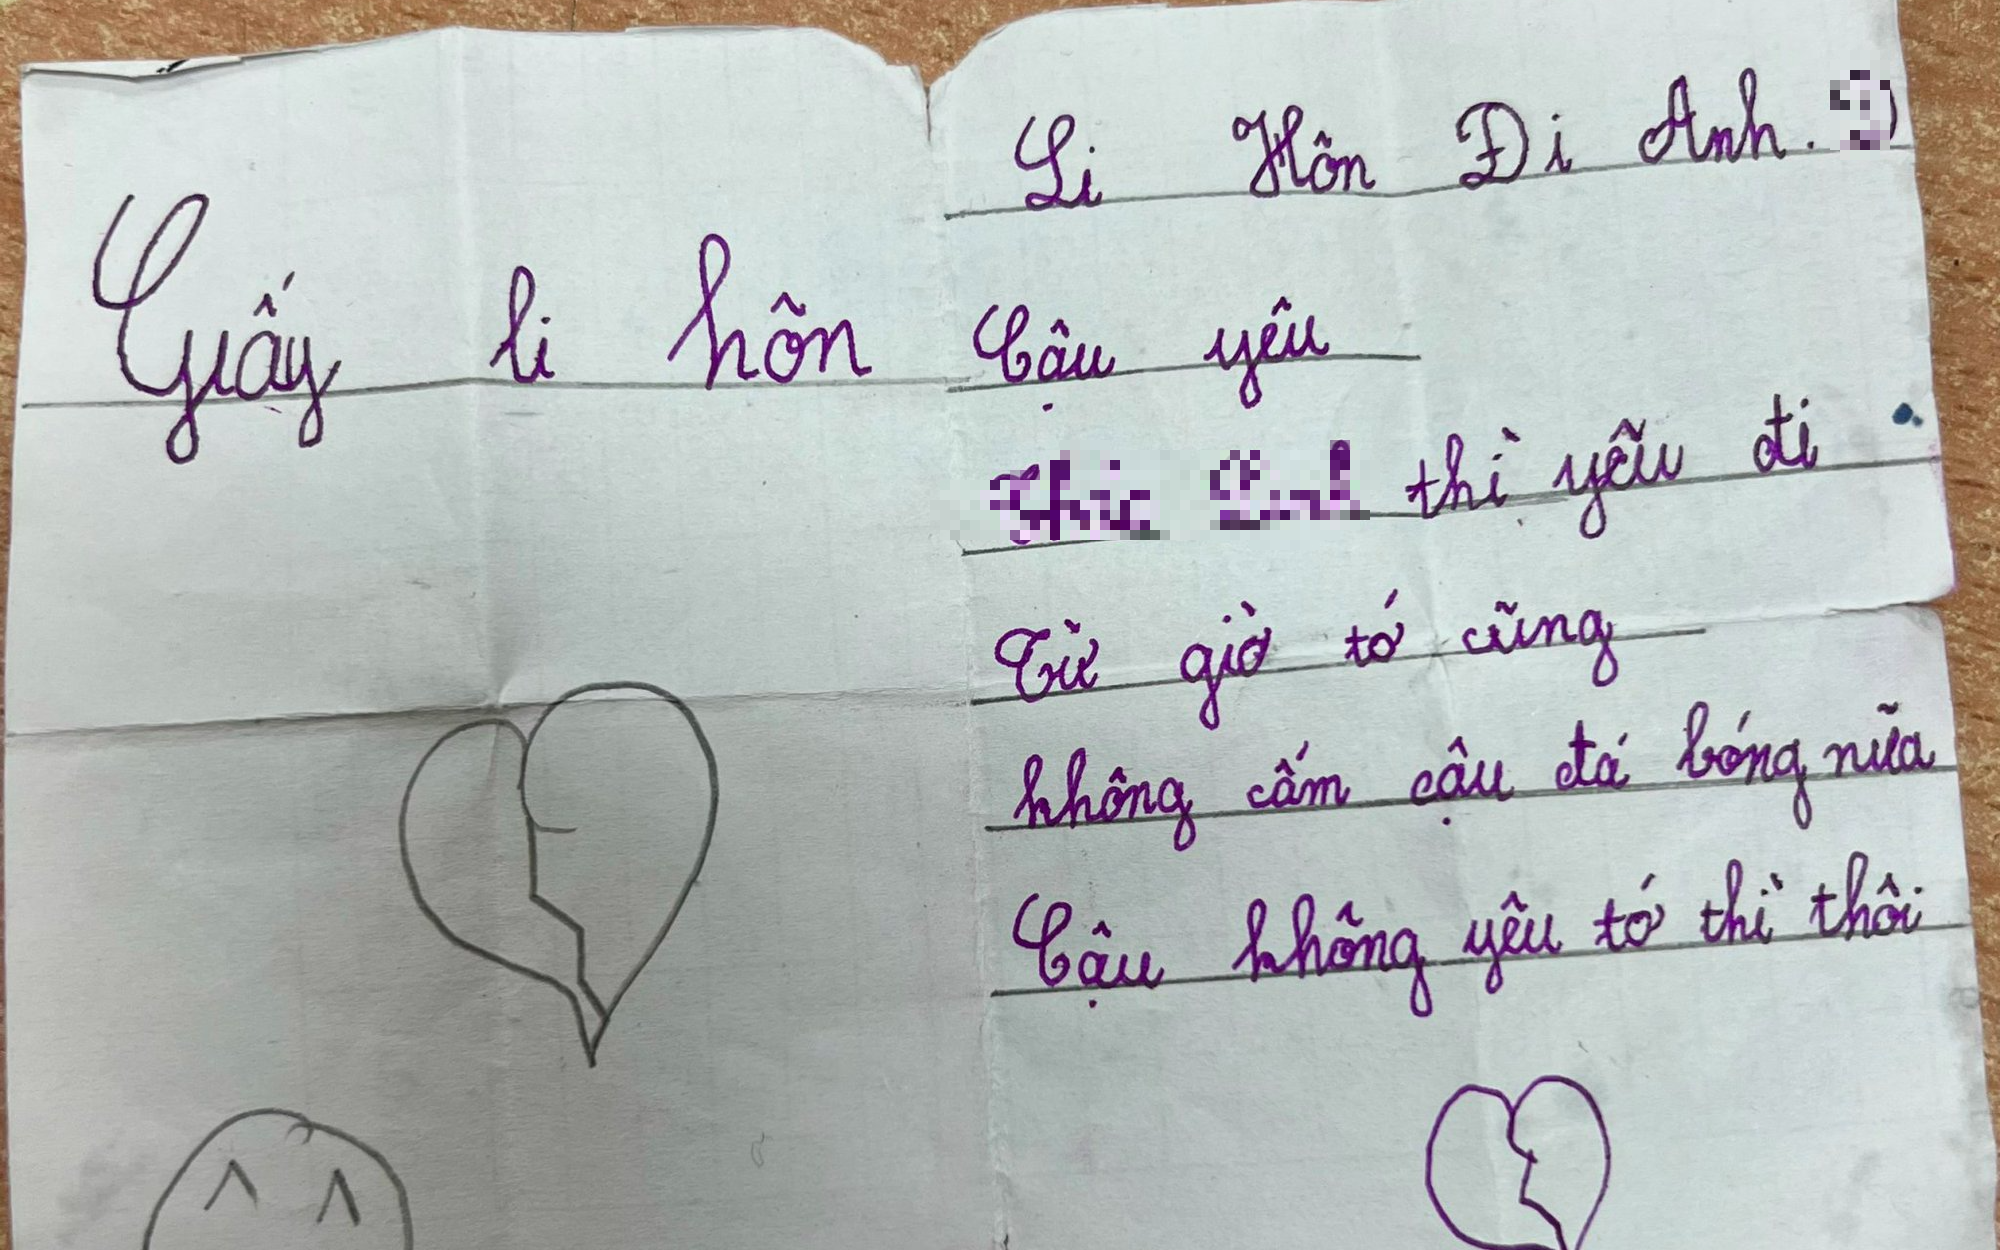 Giấy li hôn
Li Hôn Đi Anh.
Cậu yêu
thì yêu đi
Từ giờ tớ cũng
không cấm cậu đá bóng nữa
Cậu không yêu tớ thì thôi